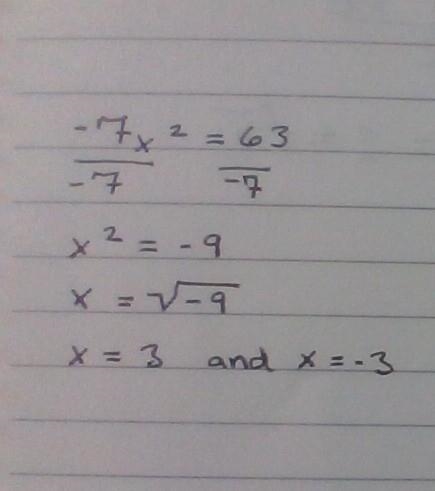 -7x² = 63
-7 -7
x² = -9
x = √-9
x = 3 and x = -3